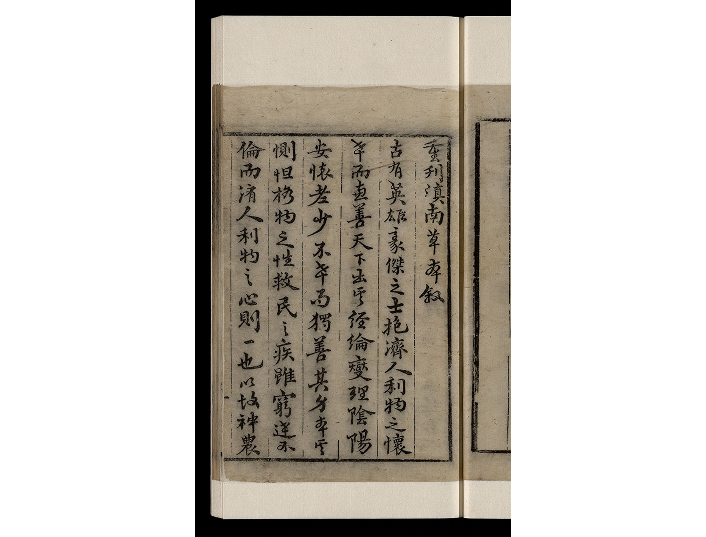 重刊滇南草本叙
古有英雄豪傑之士抱濟人利物之懷
幸而兼善天下出其經綸燮理陰陽
安懷老少不幸而獨善其身本其
惻怛格物之性救民之疾雖窮達不
倫而濟人利物之心則一也以故神農